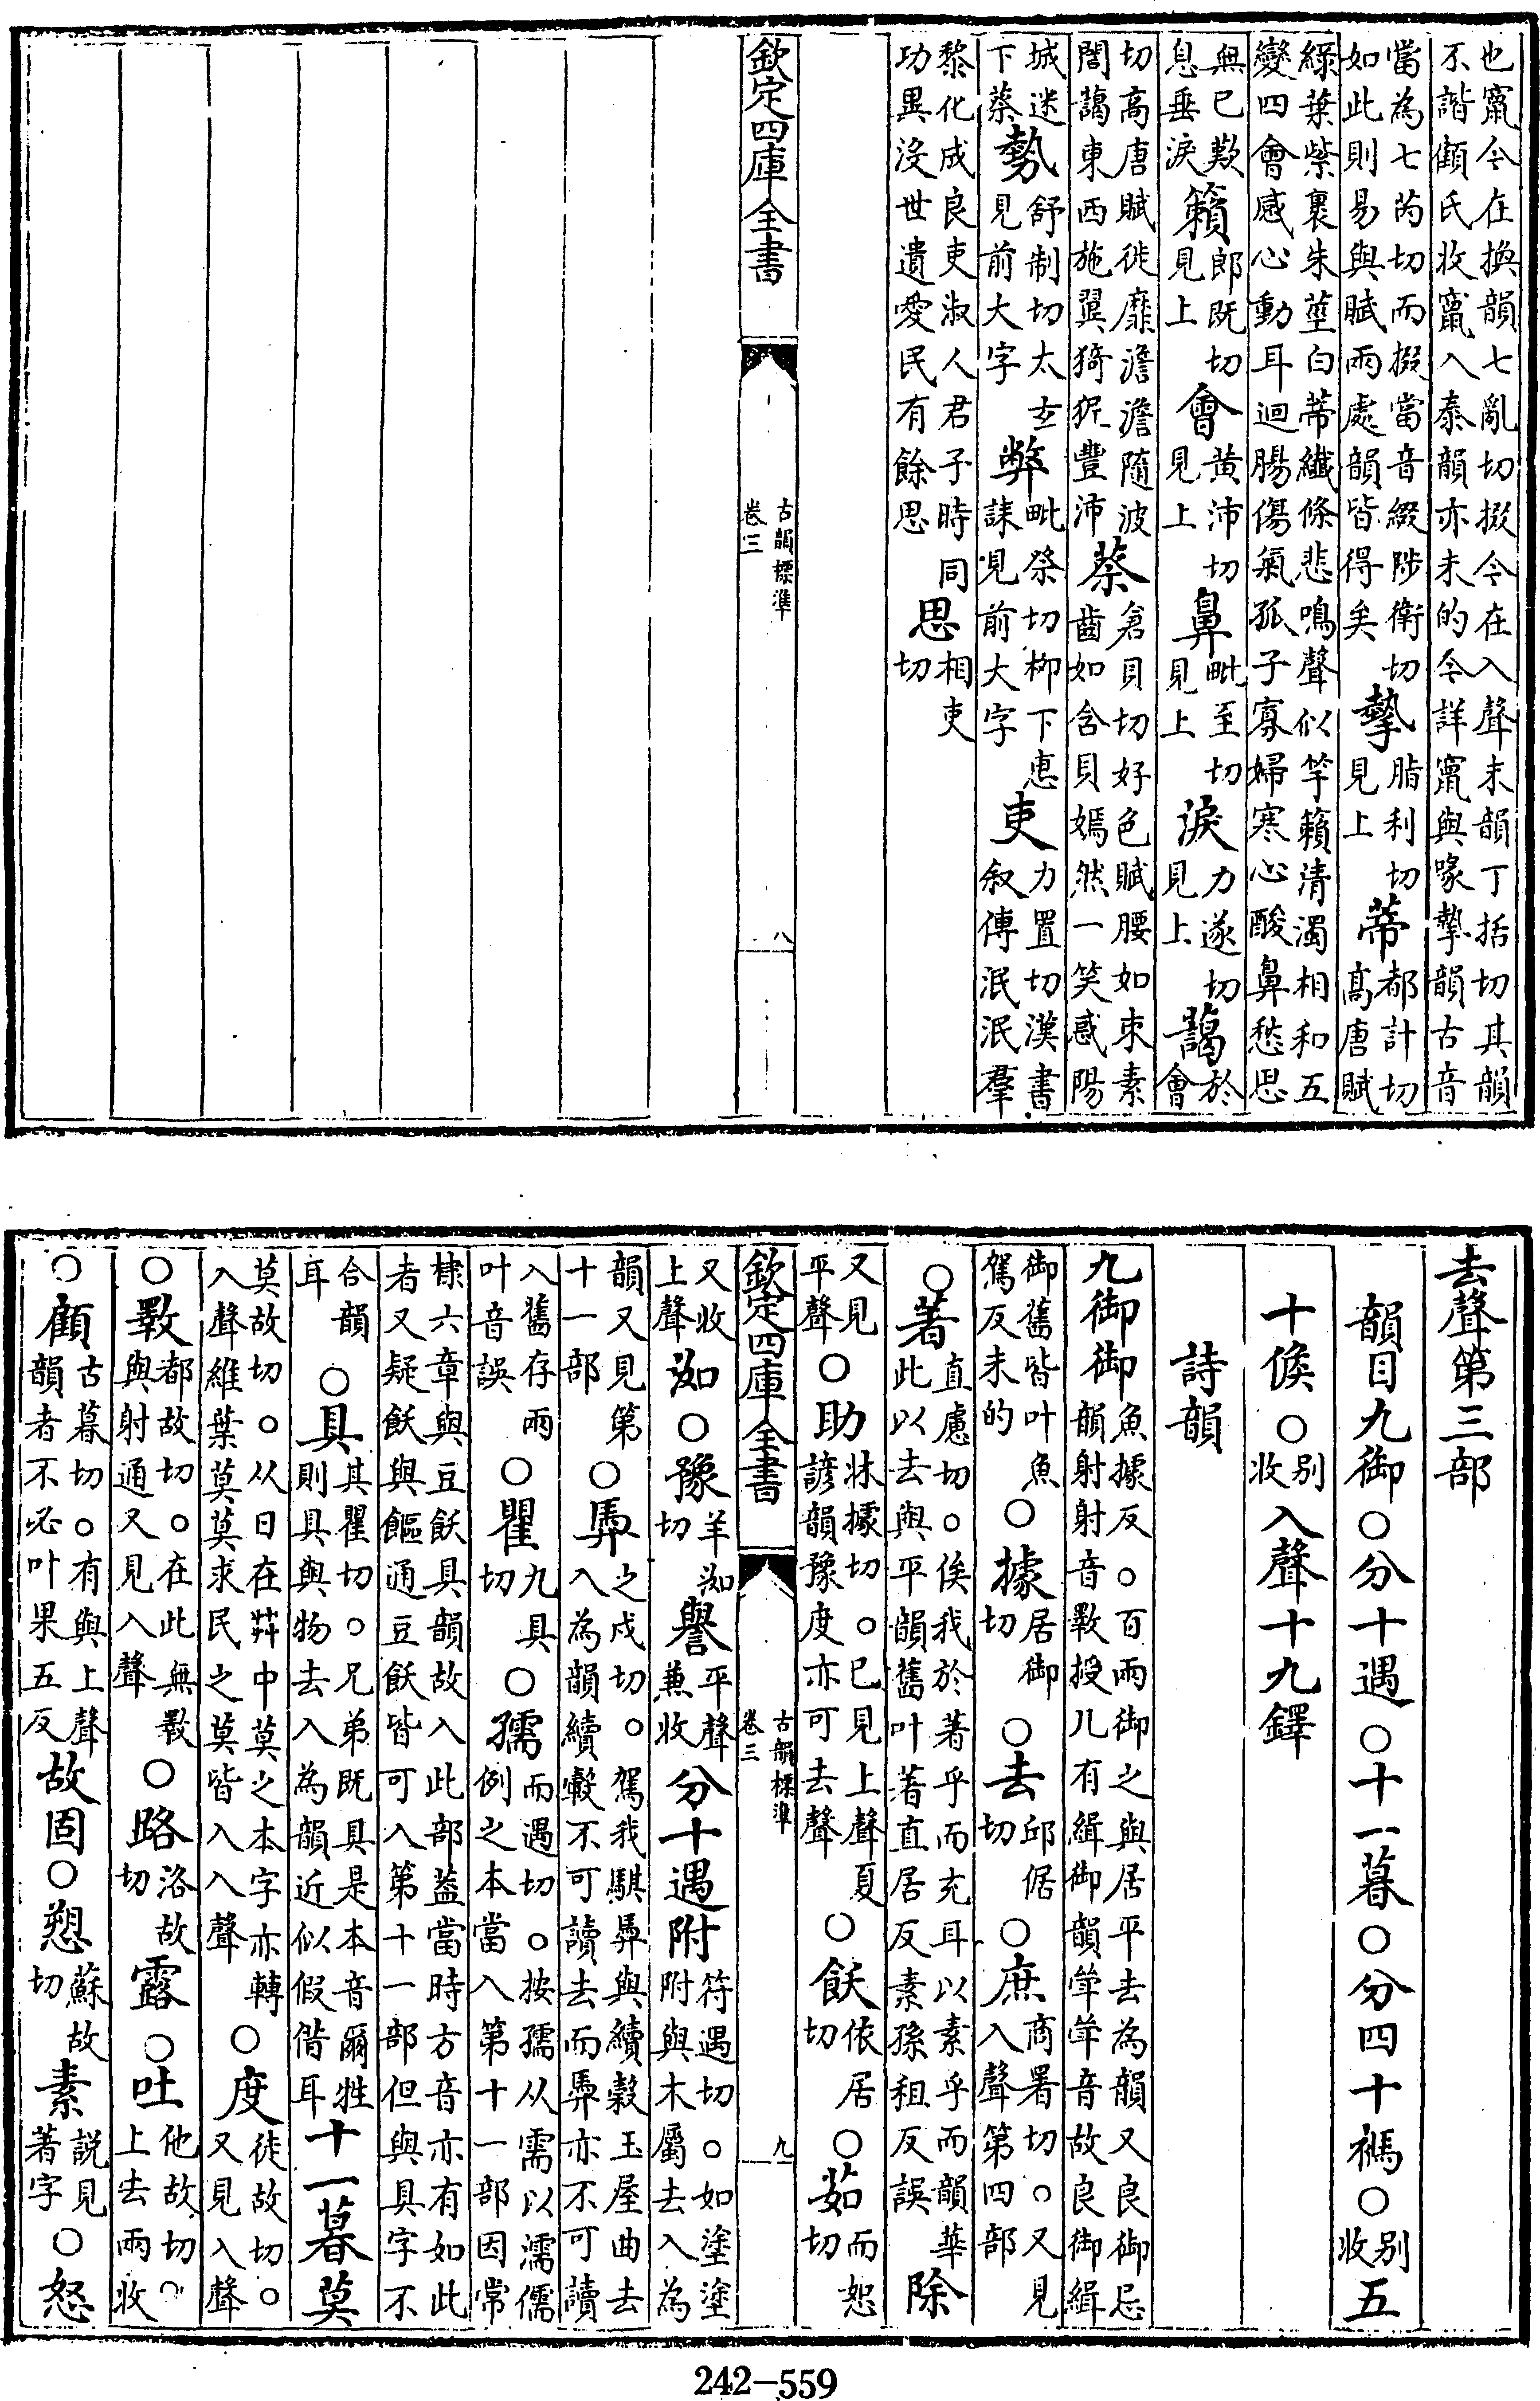 也竄今在換韻七亂切掇今在入聲末韻丁括切其韻
不諧顧氏收竄入泰韻亦未的今詳竄與喙摯韻古音
當為七芮切而掇當音綴陟衛切
如此則易與賦兩處韻皆得矣
摯脂利切見上 蔕都計切高唐賦
綠葉紫裹朱莖白蔕纖條悲鳴聲似竽籟清濁相和五
變四會感心動耳迴腸傷氣孤子寡婦寒心酸鼻愁思
無已歎息垂淚 籟郎既切見上 會黄沛切見上 鼻毗至切見上 淚力遂切見上 藹於會
切高唐賦徙靡澹澹隨波闇藹東西施翼猗狔豐沛 蔡倉貝切好色賦腰如束素齒如含貝嫣然一笑惑陽
城迷下蔡 勢舒制切太玄見前大字 弊毗祭切柳下惠誄見前大字 吏力置切漢書叙傳泯泯羣
黎化成良吏淑人君子時同功異没世遺愛民有餘思 思相吏切
欽定四庫全書
古韻標準
卷三
八
去聲第三部
韻目九御○分十遇○十一暮○分四十禡○别收五
十候○别收入聲十九鐸
詩韻
九御御魚據反○百兩御之與居平去為韻又良御忌韻射射音斁授几有緝御韻斝斝音故良御緝
御舊皆叶魚駕反未的 ○據居御切 ○去邱倨切 ○庶商署切○又見入聲第四部
○著直慮切○俟我於著乎而充耳以素乎而韻華此以去與平韻舊叶著直居反素孫租反誤 除
又見平聲 ○助牀據切○已見上聲夏諺韻豫度亦可去聲 ○飫依居切 ○茹而恕切
欽定四庫全書
古韻標準
卷三
九
又收上聲 洳○豫羊洳切 譽平聲兼收 分十遇附符遇切○如塗塗附附與木屬去入為
韻又見第十一部 ○馵之戍切○駕我騏馵與續轂玉屋曲去入為韻續轂不可讀去而馵亦不可讀
入舊存兩叶音誤 ○瞿九具切 ○孺而遇切○按孺从需以濡儒例之本當入第十一部因常
棣六章與豆飫具韻故入此部蓋當時方音亦有如此
者又疑飫與饇通豆飫皆可入第十一部但與具字不
合韻耳 ○具其瞿切○兄弟既具是本音爾牲則具與物去入為韻近似假借耳 十一暮莫
莫故切○从日在茻中莫之本字亦轉入聲維葉莫莫求民之莫皆入入聲 ○度徒故切○又見入聲
○斁都故切○在此無斁與射通又見入聲 ○路洛故切 露○吐他故切○上去兩收
○顧古暮切○有與上聲韻者不必叶果五反 故固○愬蘇故切 素説見著字 ○怒
242—559